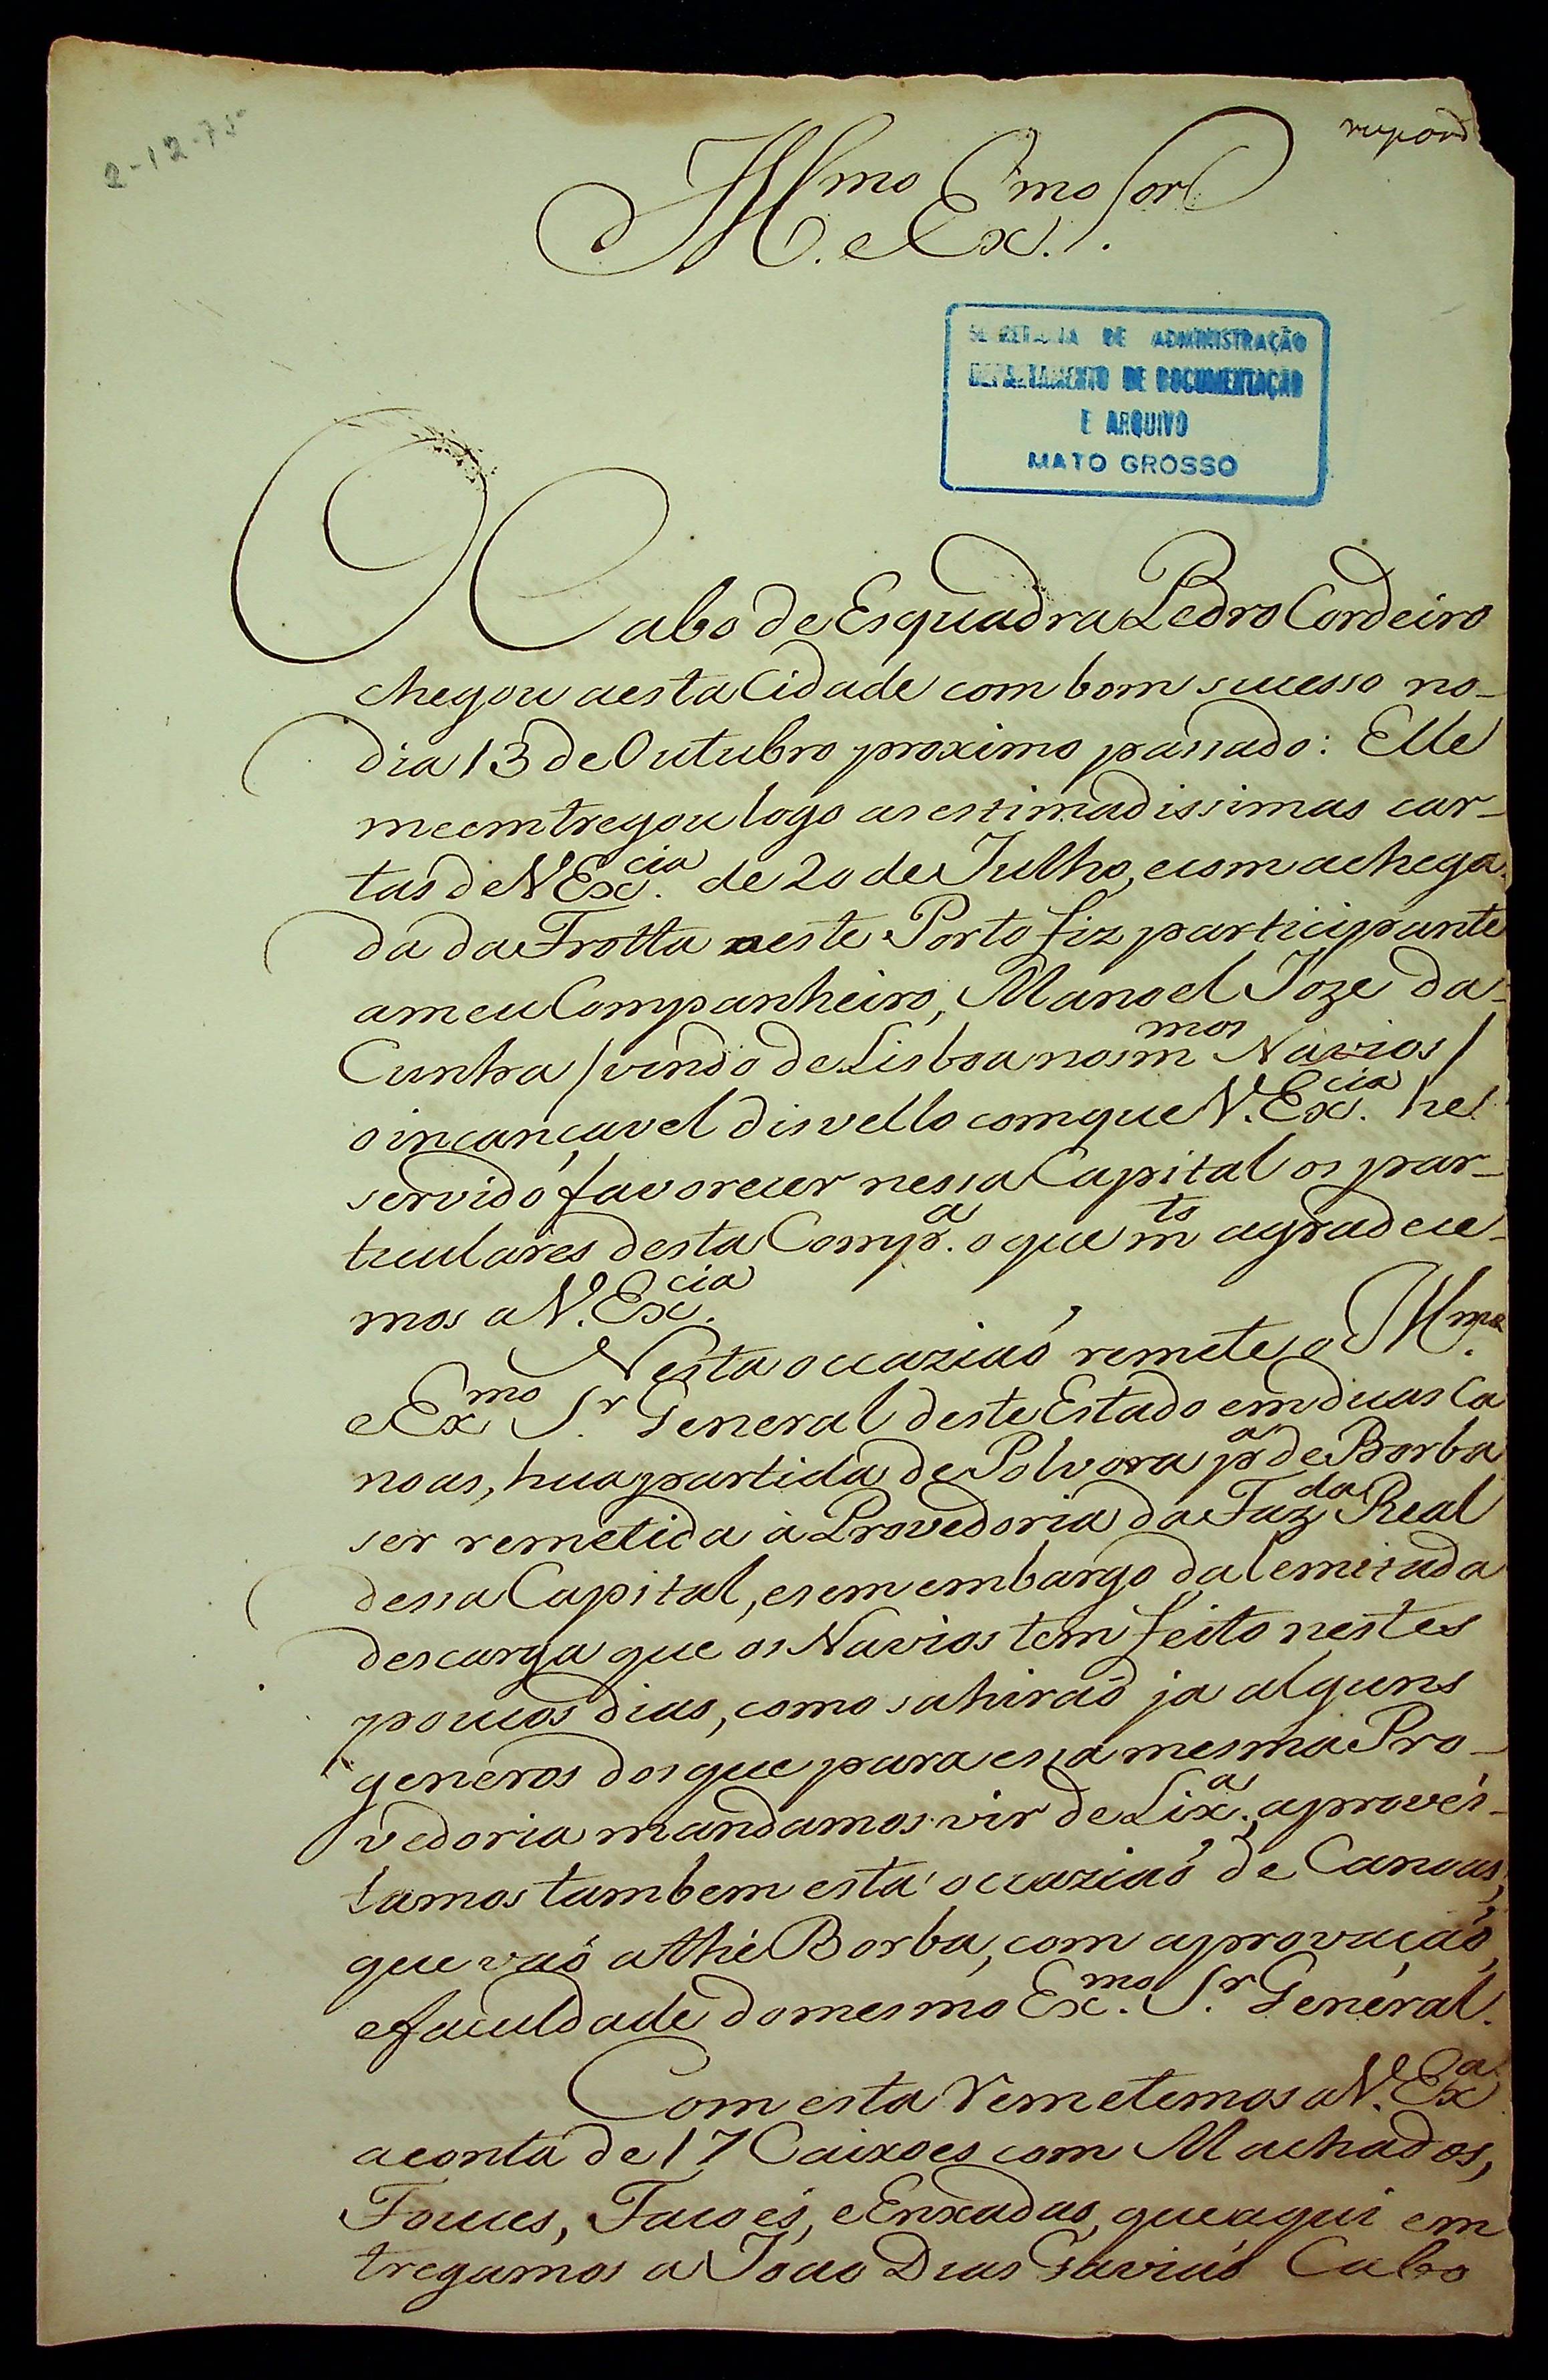 2-12-75
respond
Ill.mo e Ex.mo Sor
SECRETARIA DE ADMINISTRAÇÃO
DEPARTAMENTO DE DOCUMENTAÇÃO
E ARQUIVO
MATO GROSSO
O Cabo de Esquadra Pedro Cordeiro
chegou aesta Cidade com bom sucesso no-
dia 13 de Outubro proximo passado: Elle
meemtregou logo asestimadissimas car-
tas de V Ex.cia de 20 de Julho, ecom achega-
da da Frotta aeste Porto fiz participante
ameu Companheiro, Manoel Joze da-
Cunha /vindo de Lisboa nos m.mos Navios/
oincançavel disvello comque V. Ex.cia he
servido favorecer nessa Capital os par-
ticulares desta Comp.a o que m.to agradece-
mos a V. Ex.cia
Nesta occaziaó remete o Ill.mo
e Ex.mo S.r General deste Estado em duas Ca
noas, hua partida de Polvora p.a de Borba
ser remetida à Provedoria da Faz.da Real
dessa Capital, esem embargo da lemitada
descarga que os Navios tem feito nestes
poucos dias, como sahiraó ja alguns
generos dosque para essa mesma Pro-
vedoria mandamos vir de Lix.a, aprovei-
tamos tambem esta occaziaó de Canoas,
que vaó athé Borba, com aprovaçaó,
efaculdade domesmo Ex.mo S.r General.
Com esta Remetemos a V. Ex.a
aconta de 17 Caixoes com Machados,
Fouces, Facoés, e Enxadas, queaqui em
tregamos a Joao Dias Gaviaó Cabo